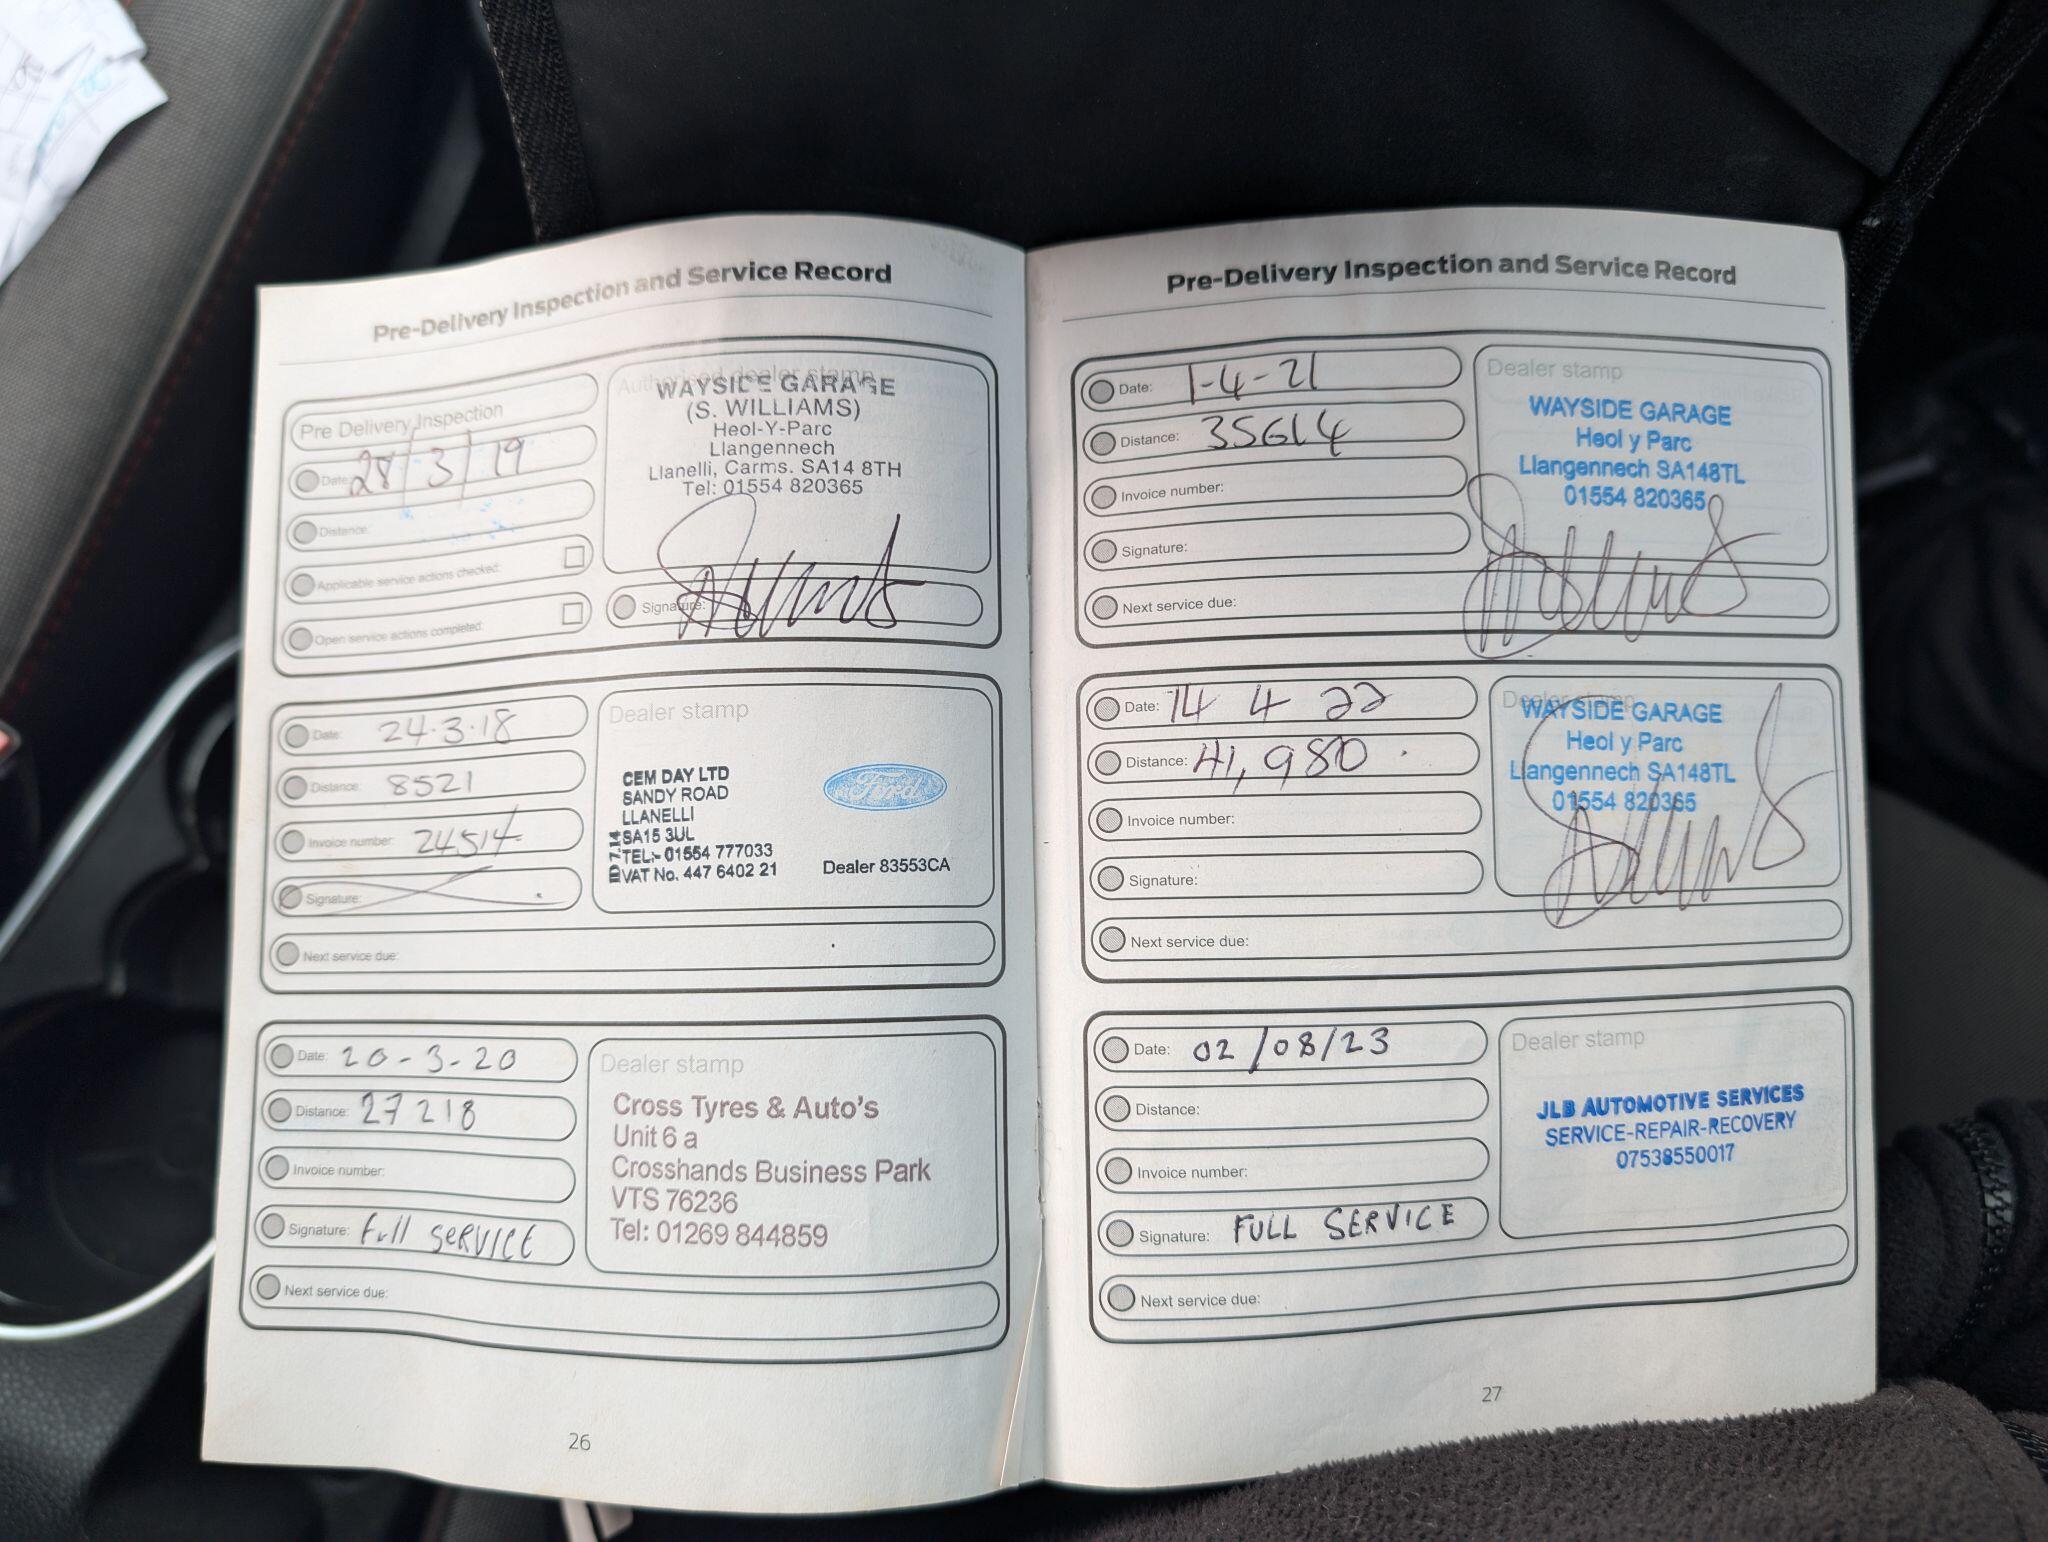 Pre-Delivery Inspection and Service Record
Pre Delivery Inspection
Date: 28/3/19
Distance:
Applicable service actions checked:
Open service actions completed:
Authorised dealer stamp
WAYSIDE GARAGE
(S. WILLIAMS)
Heol-Y-Parc
Llangennech
Llanelli, Carms. SA14 8TH
Tel: 01554 820365
Signature:
Date: 24.3.18
Distance: 8521
Invoice number: 24514
Signature:
Next service due:
Dealer stamp
CEM DAY LTD
SANDY ROAD
LLANELLI
SA15 3UL
TEL:- 01554 777033
VAT No. 447 6402 21
Ford
Dealer 83553CA
Date: 20-3-20
Distance: 27218
Invoice number:
Signature: Full SERVICE
Next service due:
Dealer stamp
Cross Tyres & Auto's
Unit 6 a
Crosshands Business Park
VTS 76236
Tel: 01269 844859
26
Pre-Delivery Inspection and Service Record
Date: 1-4-21
Distance: 35614
Invoice number:
Signature:
Next service due:
Dealer stamp
WAYSIDE GARAGE
Heol y Parc
Llangennech SA148TL
01554 820365
Date: 14 4 22
Distance: 41,980
Invoice number:
Signature:
Next service due:
Dealer stamp
WAYSIDE GARAGE
Heol y Parc
Llangennech SA148TL
01554 820365
Date: 02/08/23
Distance:
Invoice number:
Signature: FULL SERVICE
Next service due:
Dealer stamp
JLB AUTOMOTIVE SERVICES
SERVICE-REPAIR-RECOVERY
07538550017
27